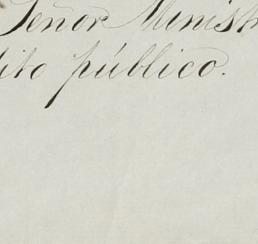 Señor Minist
ito público.